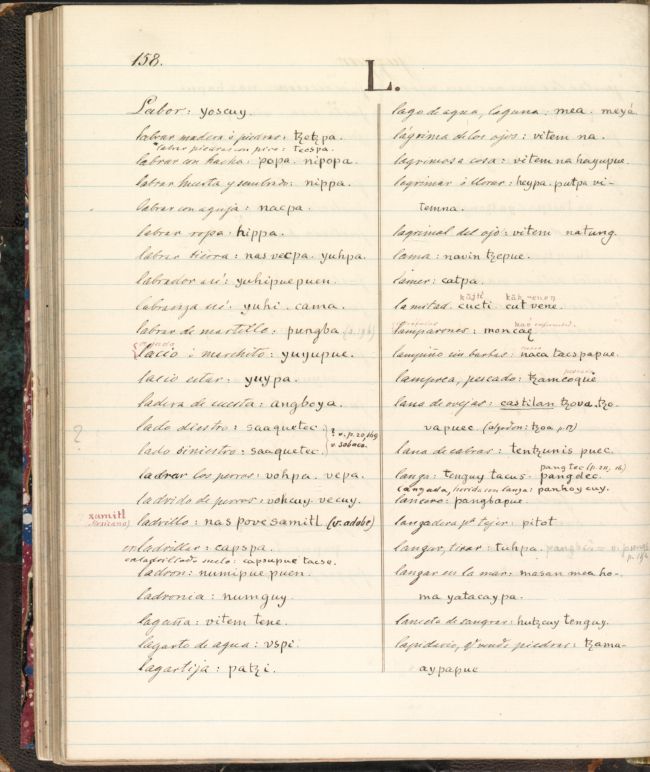 158.
L.
Labor: yoscuy.
labrar madera ó piedras: tzetzpa.
labrar piedras con pico: tzospa.
labrar con hacha: popa. nipopa.
labrar huerta y sembrado: nippa.
labrar con aguja: nacpa.
labrar ropa: hippa.
labrar tierra: nas vecpa. yuhpa.
labrador así: yuhipuepuen.
labranza así: yuhi. cama.
labrar de martillo: pungba
lacio ó marchito: yuyupue.
lacio estar: yuypa.
ladera de cuesta: angboya.
lado diestro: saaquetec.
? v. p. 20, 169
?
lado siniestro: saaquetec.
v. sobaco.
ladrar los perros: vohpa. vepa.
ladrido de perros: vohcuy. vecuy.
xamitl
(Mexicano)
ladrillo: nas pove samitl. (v. adobe)
enladrillar: capspa.
enladrillado suelo: capsupue tacse.
ladron: numipue puen.
ladronia: numguy.
lagaña: vitem tene.
lagarto de agua: vspi.
lagartija: patzi.
lago de agua, laguna: mea. meyá
lágrima de los ojos: vitem na.
lagrimosa cosa: vitem na hayupue.
lagrimar ó llorar: heypa. putpa vi-
temna.
lagrimal del ojo: vitem natung.
lama: navin tzepue.
lamer: catpa.
la mitad. cucti cut vene.
lamparones: moncaq
lampiño sin barbas: naca tacspapue.
lamprea, pescado: tzamcoque
lana de ovejas: castilan tzova. tzo-
vapuec. (algodon: tzoa p. 17)
lana de cabras: tentzunis puec.
pangtec
lanza: tenguy tacus. pangdec.
lanzada, herida con lanza: panhoycuy.
lancero: pangbapue.
lanzadera pa. tejer: pitot.
lanzar, tirar: tuhpa.
lanzar en la mar: masan mea ho-
ma yatacaypa.
lanceta de sangrar: hutzcuy tenguy.
lapidario, q' vende piedras: tzama-
aypapue